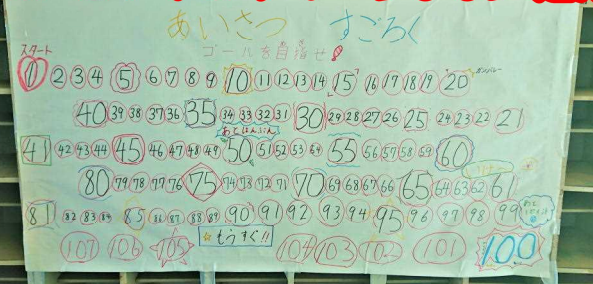 あいさつ すごろく
ゴールを目指せ!
スタート
1 2 3 4 5 6 7 8 9 10 11 12 13 14 15 16 17 18 19 20
40 39 38 37 36 35 34 33 32 31 30 29 28 27 26 25 24 23 22 21
あとはんぶん
41 42 43 44 45 46 47 48 49 50 51 52 53 54 55 56 57 58 59 60
80 79 78 77 76 75 74 73 72 71 70 69 68 67 66 65 64 63 62 61
81 82 83 84 85 86 87 88 89 90 91 92 93 94 95 96 97 98 99
107 106 105 もうすぐ!! 104 103 102 101 100